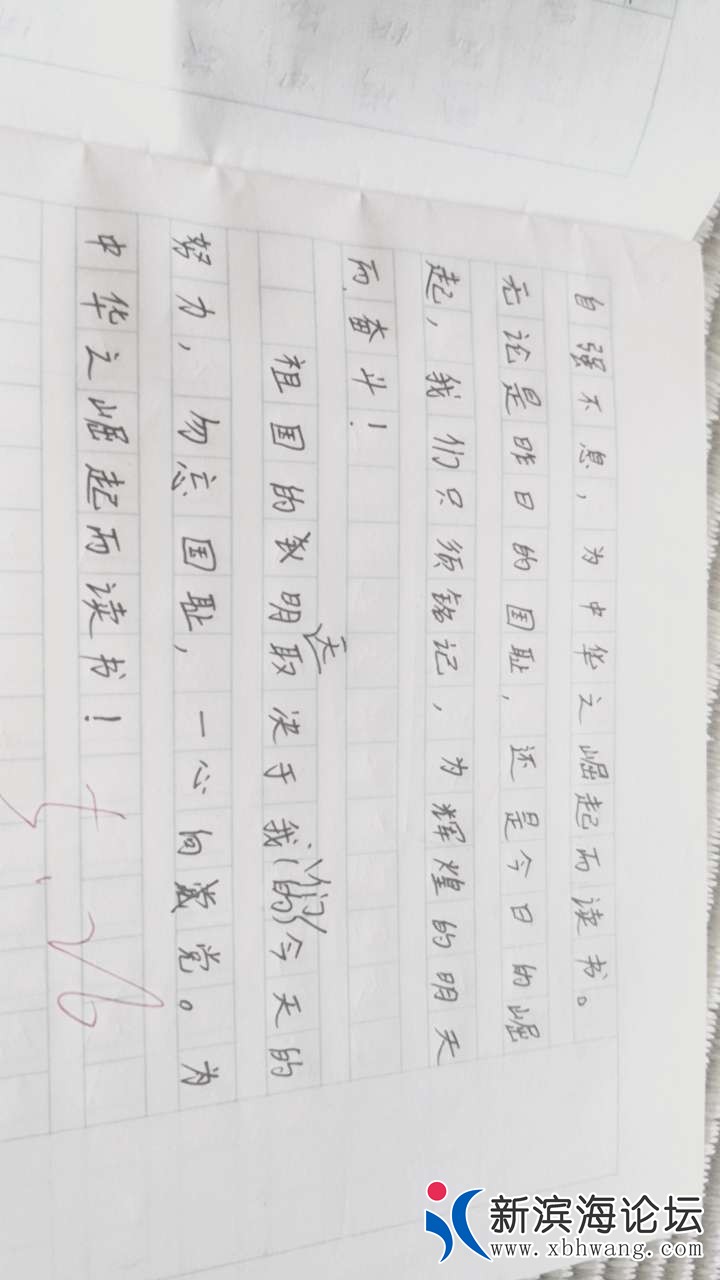 自强不息，为中华之崛起而读书。
无论是昨日的国耻，还是今日的崛
起，我们只须铭记，为辉煌的明天
而奋斗！
祖国的明天取决于我们今天的
努力，勿忘国耻，一心向党。为
中华之崛起而读书！
新滨海论坛
www.xbhwang.com